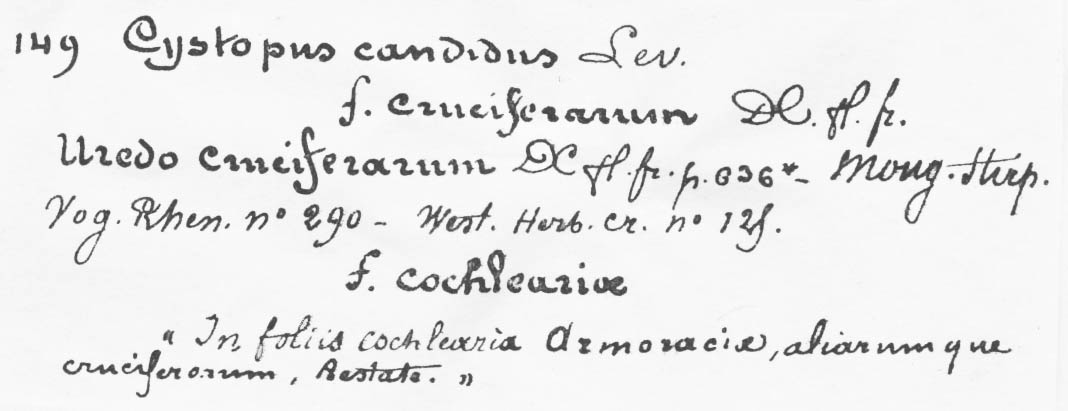 149 Cystopus candidus Lev.
f. cruciferarum DC. fl. fr.
Uredo cruciferarum DC fl. fr. p. 636* - Moug. Stirp.
Vog. Rhen. n° 290 - West. Herb. cr. n° 125.
f. cochleariæ
" In foliis cochlearia Armoraciæ, aliarumque
cruciferorum, Aestate. "